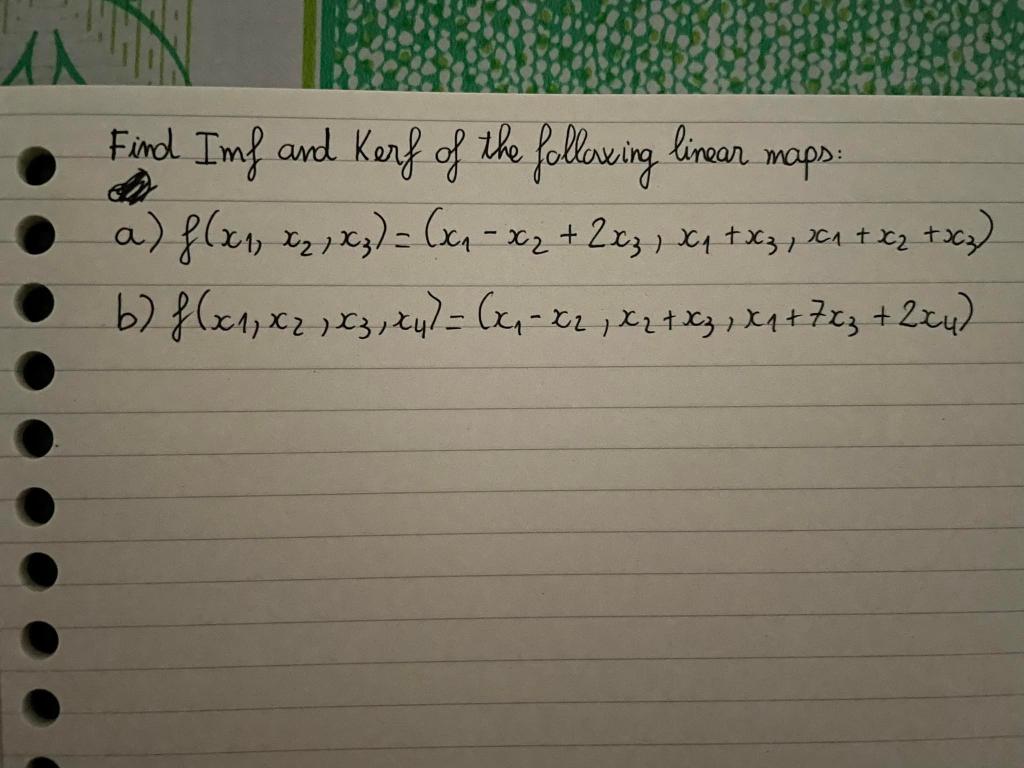 Find Imf and Kerf of the following linear maps:
a) f(x₁, x₂, x₃) = (x₁ - x₂ + 2x₃, x₁ + x₃, x₁ + x₂ + x₃)
b) f(x₁, x₂, x₃, x₄) = (x₁ - x₂, x₂ + x₃, x₁ + 7x₃ + 2x₄)